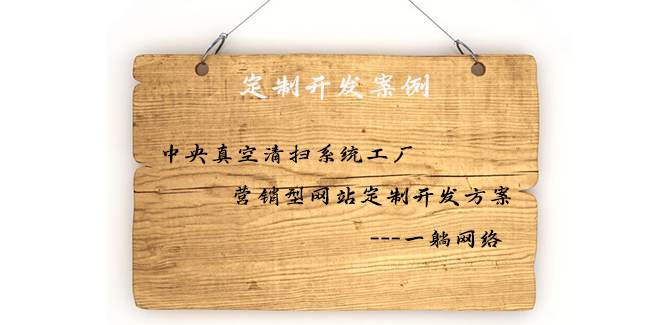 定制开发案例
中央真空清扫系统工厂
营销型网站定制开发方案
---一躺网络